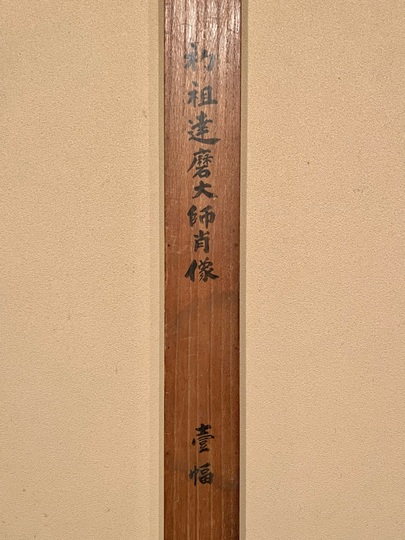 初祖達磨大師肖像
壹幅